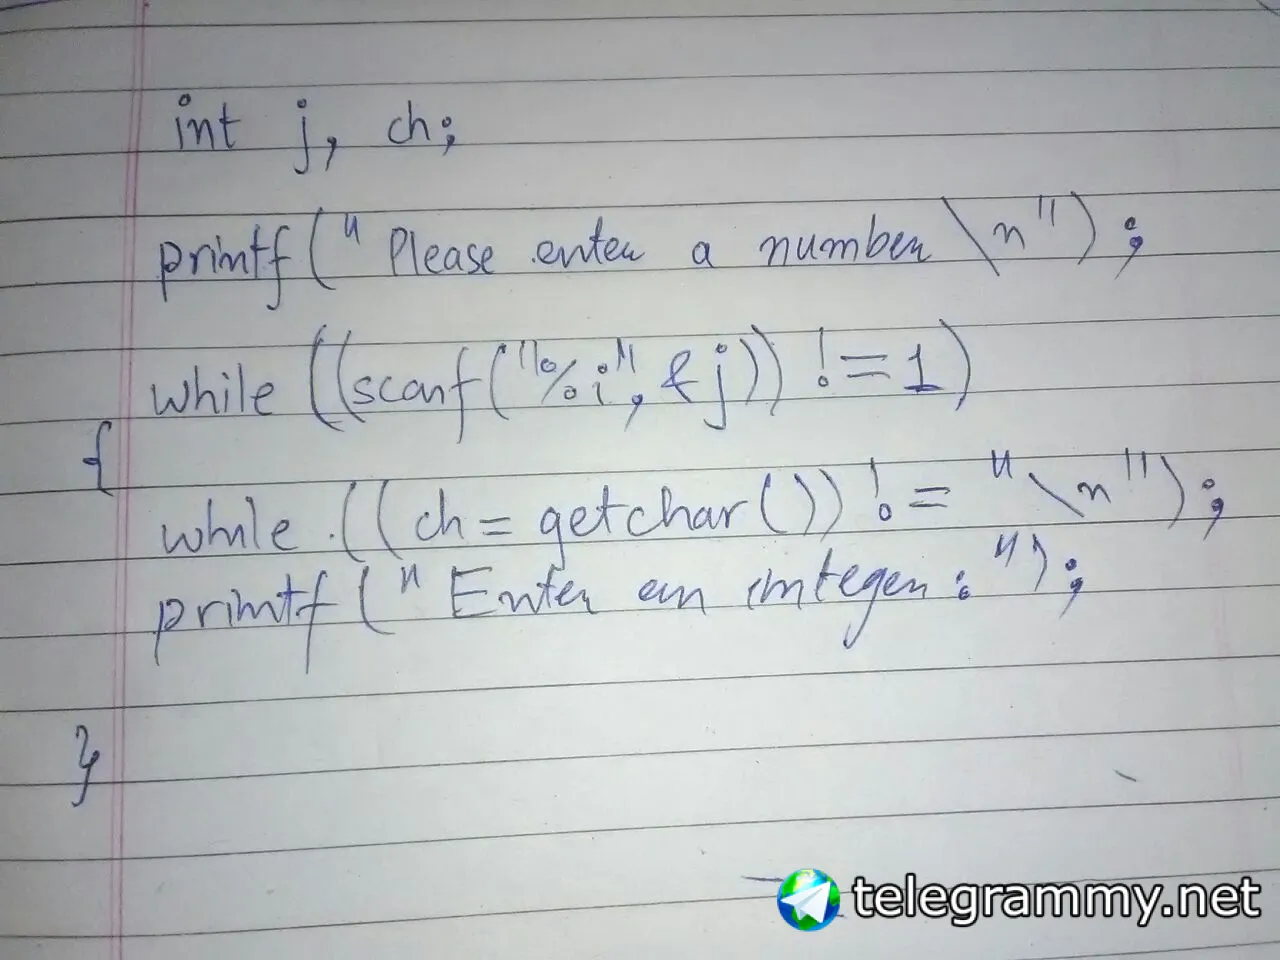 int j, ch;
printf("Please enter a number \n");
while ((scanf("%i", &j)) != 1)
{
while ((ch = getchar()) != "\n");
printf("Enter an integer: ");
}
telegrammy.net